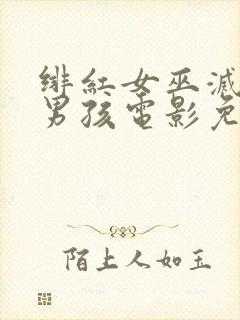 绯红女巫灭
男孩电影免
陌上人如玉